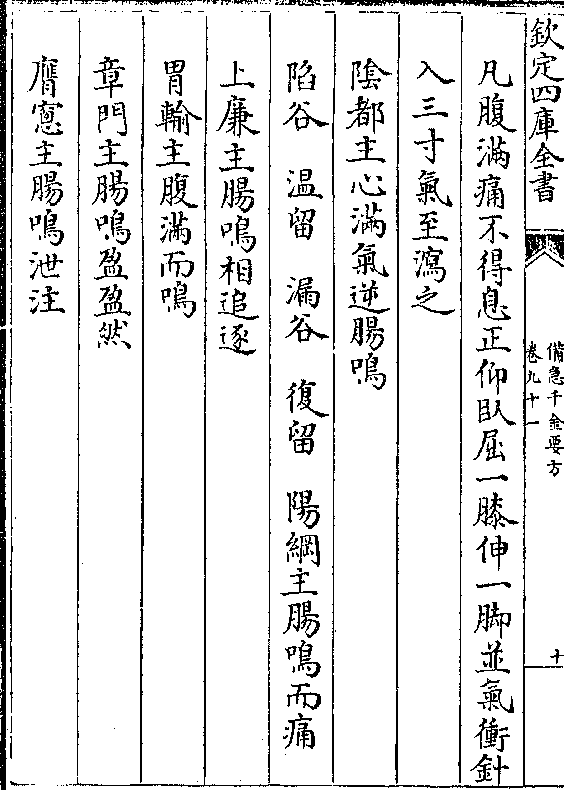 欽定四庫全書
備急千金要方
卷九十一
十
凡腹滿痛不得息正仰臥屈一膝伸一脚並氣衝針
入三寸氣至瀉之
陰都主心滿氣逆腸鳴
陷谷 温留 漏谷 復留 陽綱主腸鳴而痛
上廉主腸鳴相追逐
胃輸主腹滿而鳴
章門主腸鳴盈盈然
膺窻主腸鳴泄注